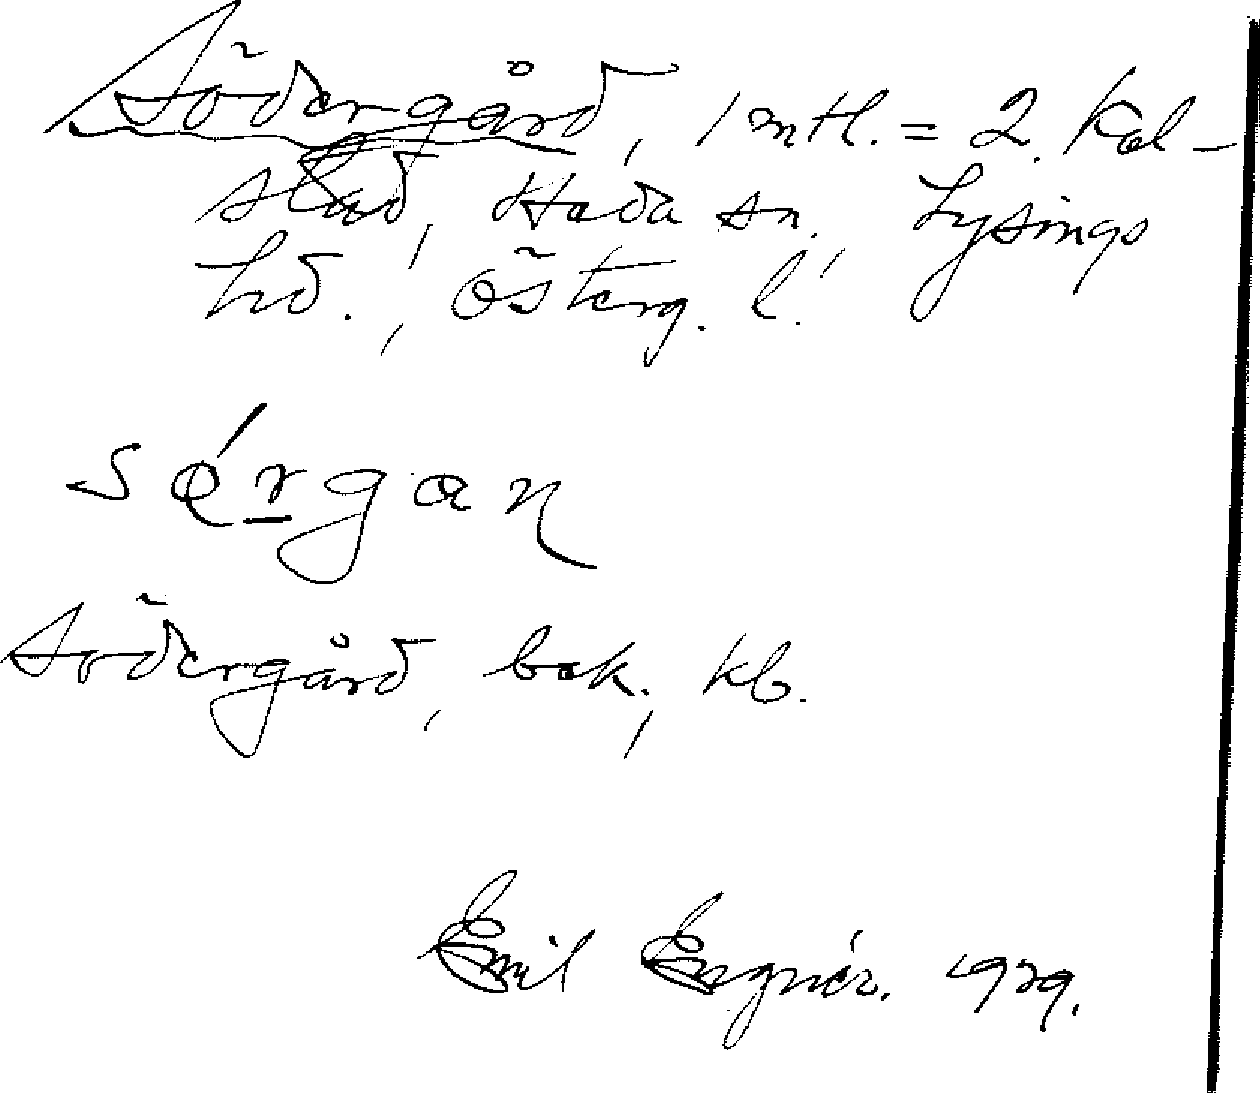 Södergård, 1 mtl. = 2. Kål-
stad, Heda sn., Lysings
hd., Österg. l.
sǿrgan
Södergård, bok., kb.
Emil Engnér. 1929.